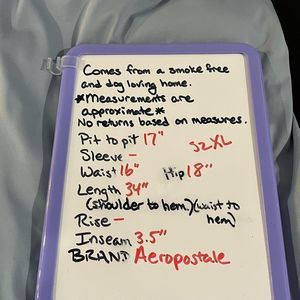 Comes from a smoke free
and dog loving home.
*Measurements are
approximate*
No returns based on measures.
Pit to pit 17" S2XL
Sleeve -
Waist 16" Hip 18"
Length 34"
(shoulder to hem)(waist to
hem)
Rise -
Inseam 3.5"
BRAND Aeropostale